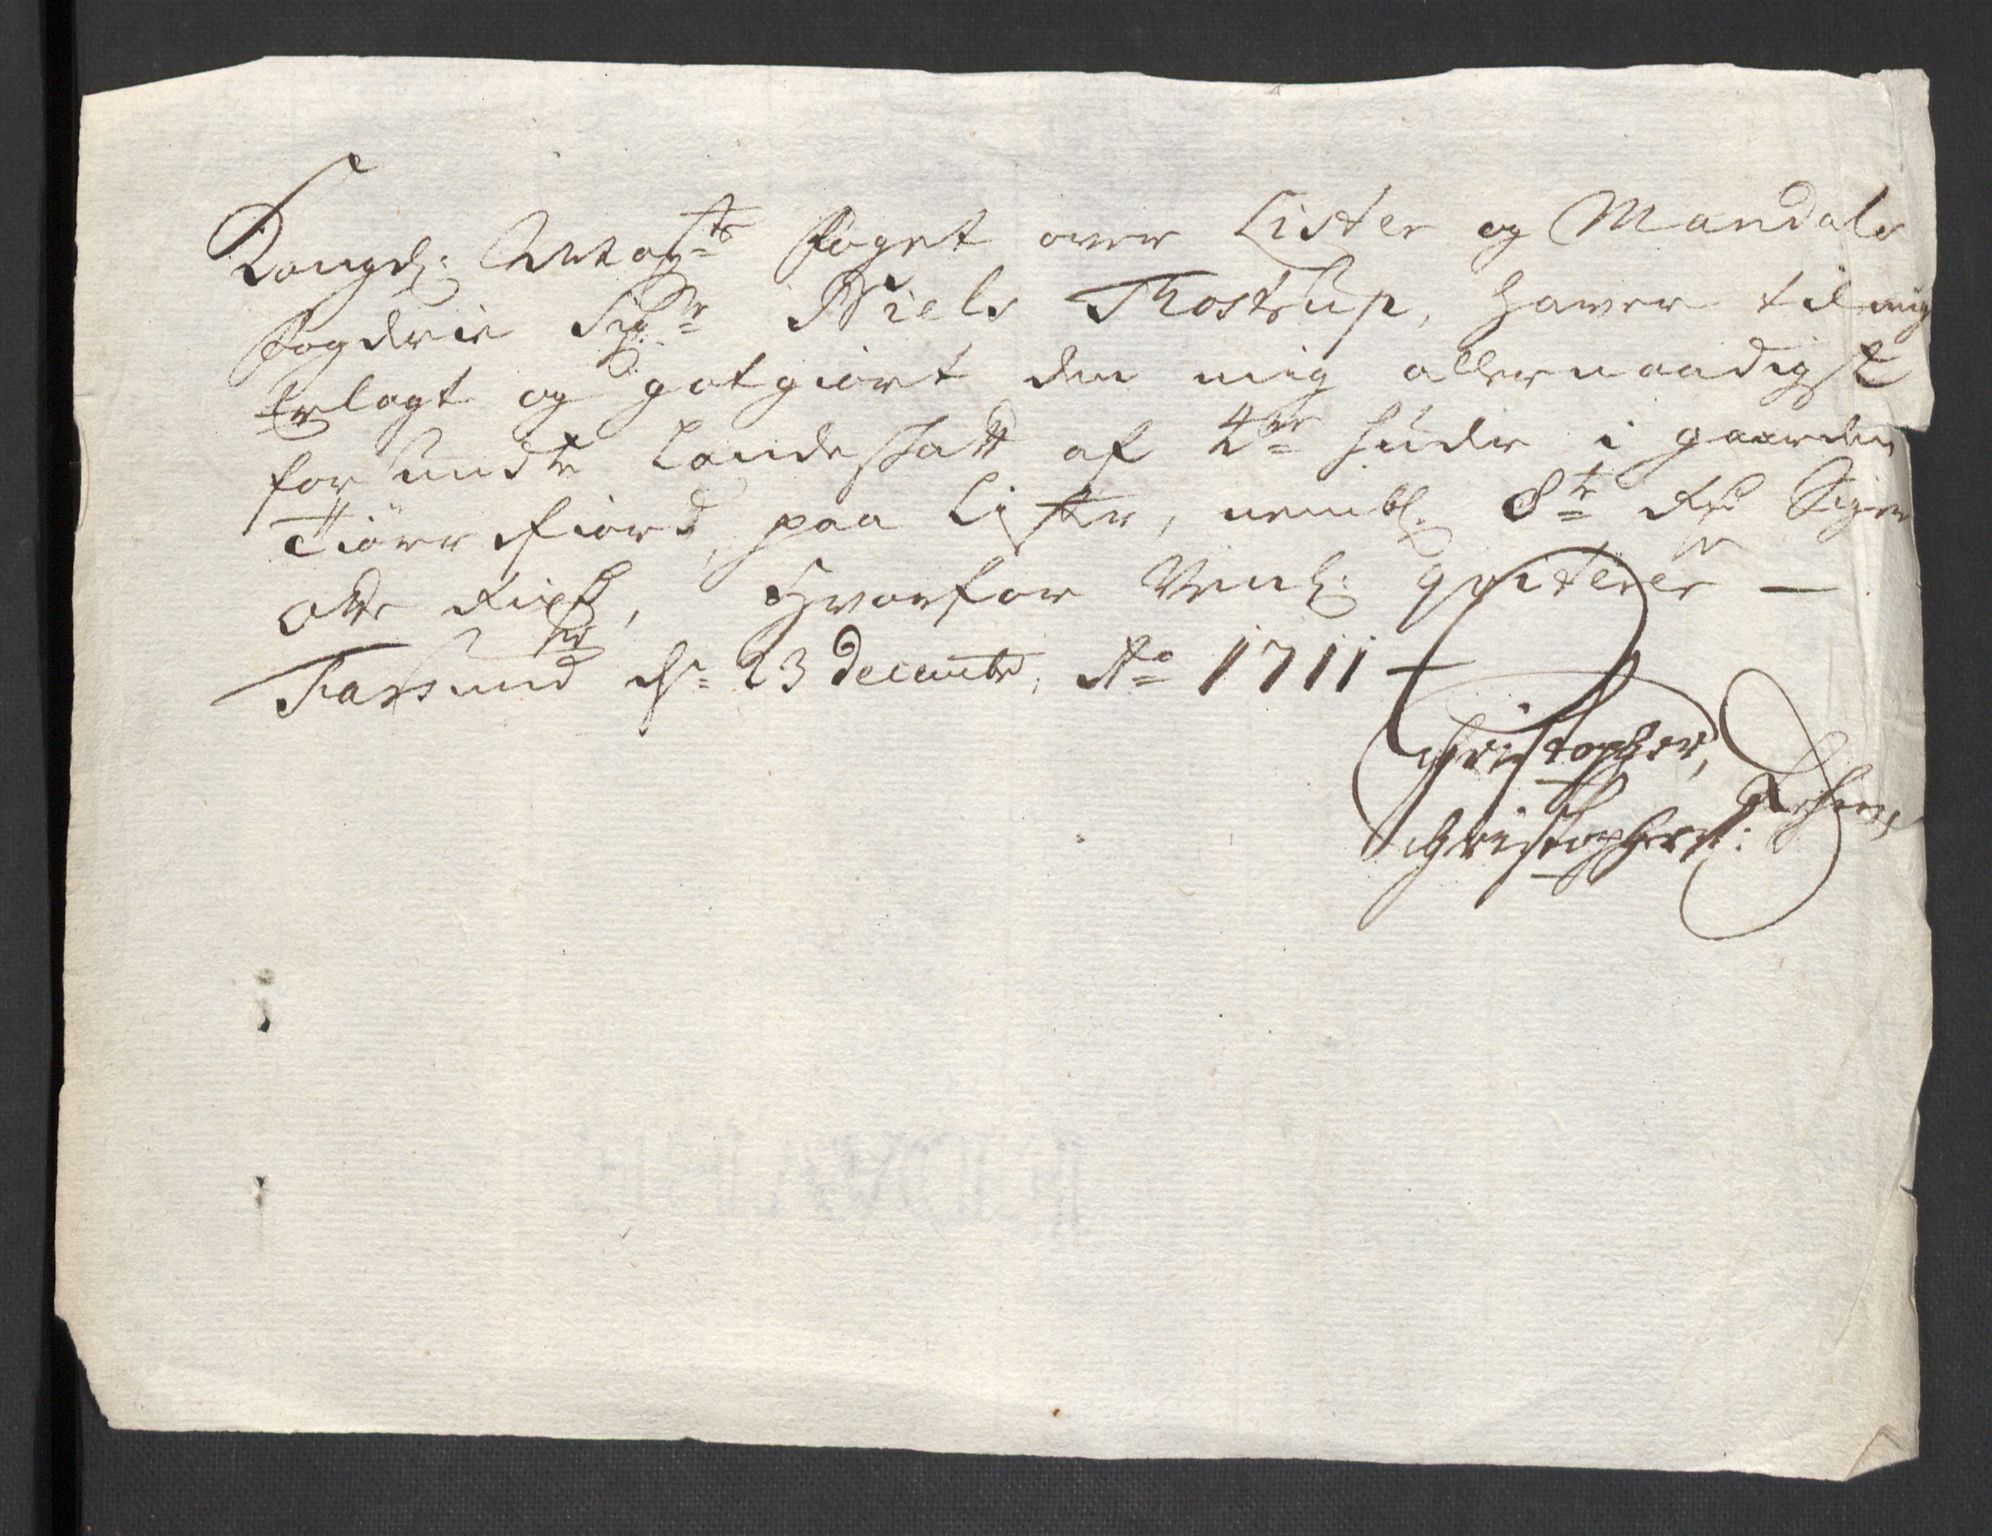 Kongel: Mayts Foget over Lister og Mandals
fogderie Sigr Niels Thostrup, haver til mig
Erlagt og gotgiort den mig allernaadigst
forundte Landeskatt af 4re huder i gaarden
Tiørrefiord, paa Lister, nembl. 8te Rd Siger
otte Rixdr, Hvorfor Venl: qviterer —
Farsund dn 23 decembr, Ao 1711
Christopher,
Christophers: